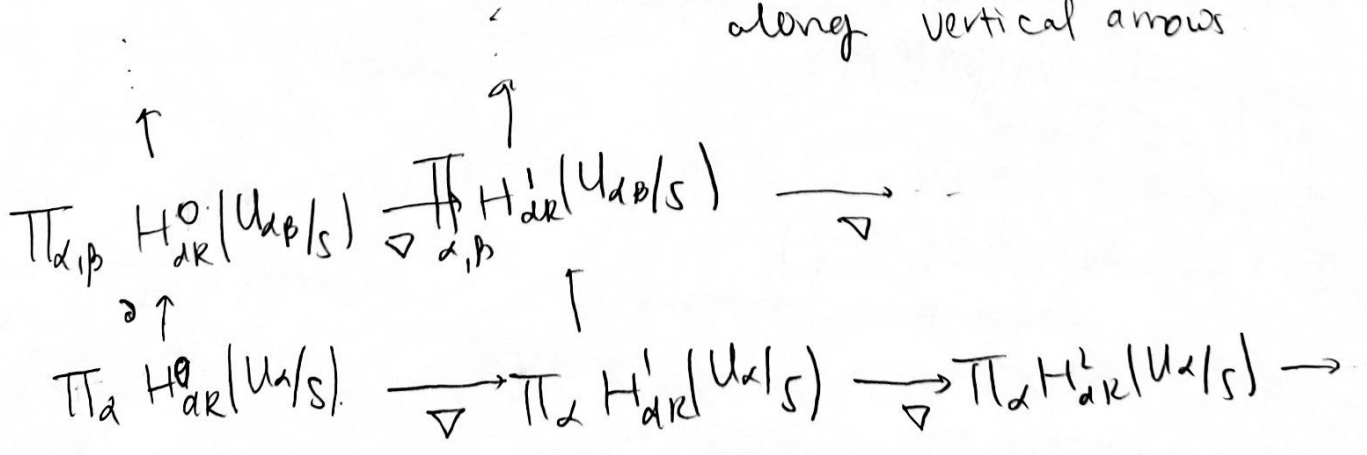 along vertical arrows
∏_{α,β} H^0_{dR}(U_{αβ}/S) →_∇ ∏_{α,β} H^1_{dR}(U_{αβ}/S) →_∇ ...
∂ ↑ ↑
∏_α H^0_{dR}(U_α/S). →_∇ ∏_α H^1_{dR}(U_α/S) →_∇ ∏_α H^2_{dR}(U_α/S) →